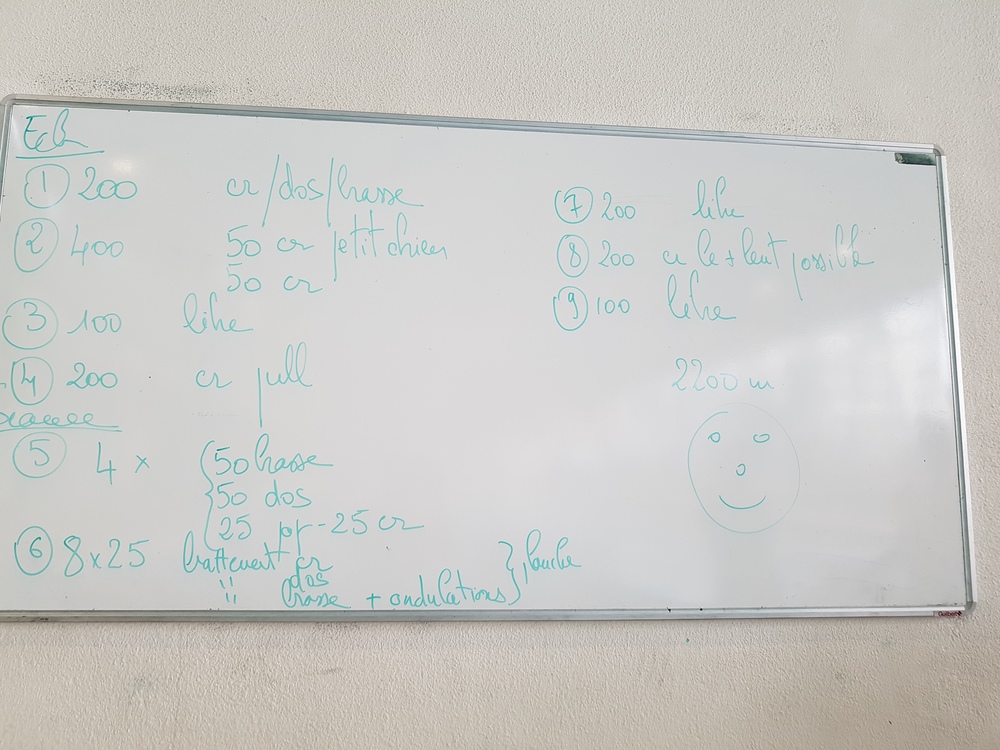 Ech
① 200 cr/dos/brasse
② 400 50 cr petit chien
50 cr
③ 100 libre
④ 200 cr pull
⑤ 4 x { 50 brasse
50 dos
25 pp - 25 cr
⑥ 8 x 25 battement cr
" dos
" brasse + ondulations } planche
⑦ 200 libre
⑧ 200 cr le + lent possible
⑨ 100 libre
2200 m